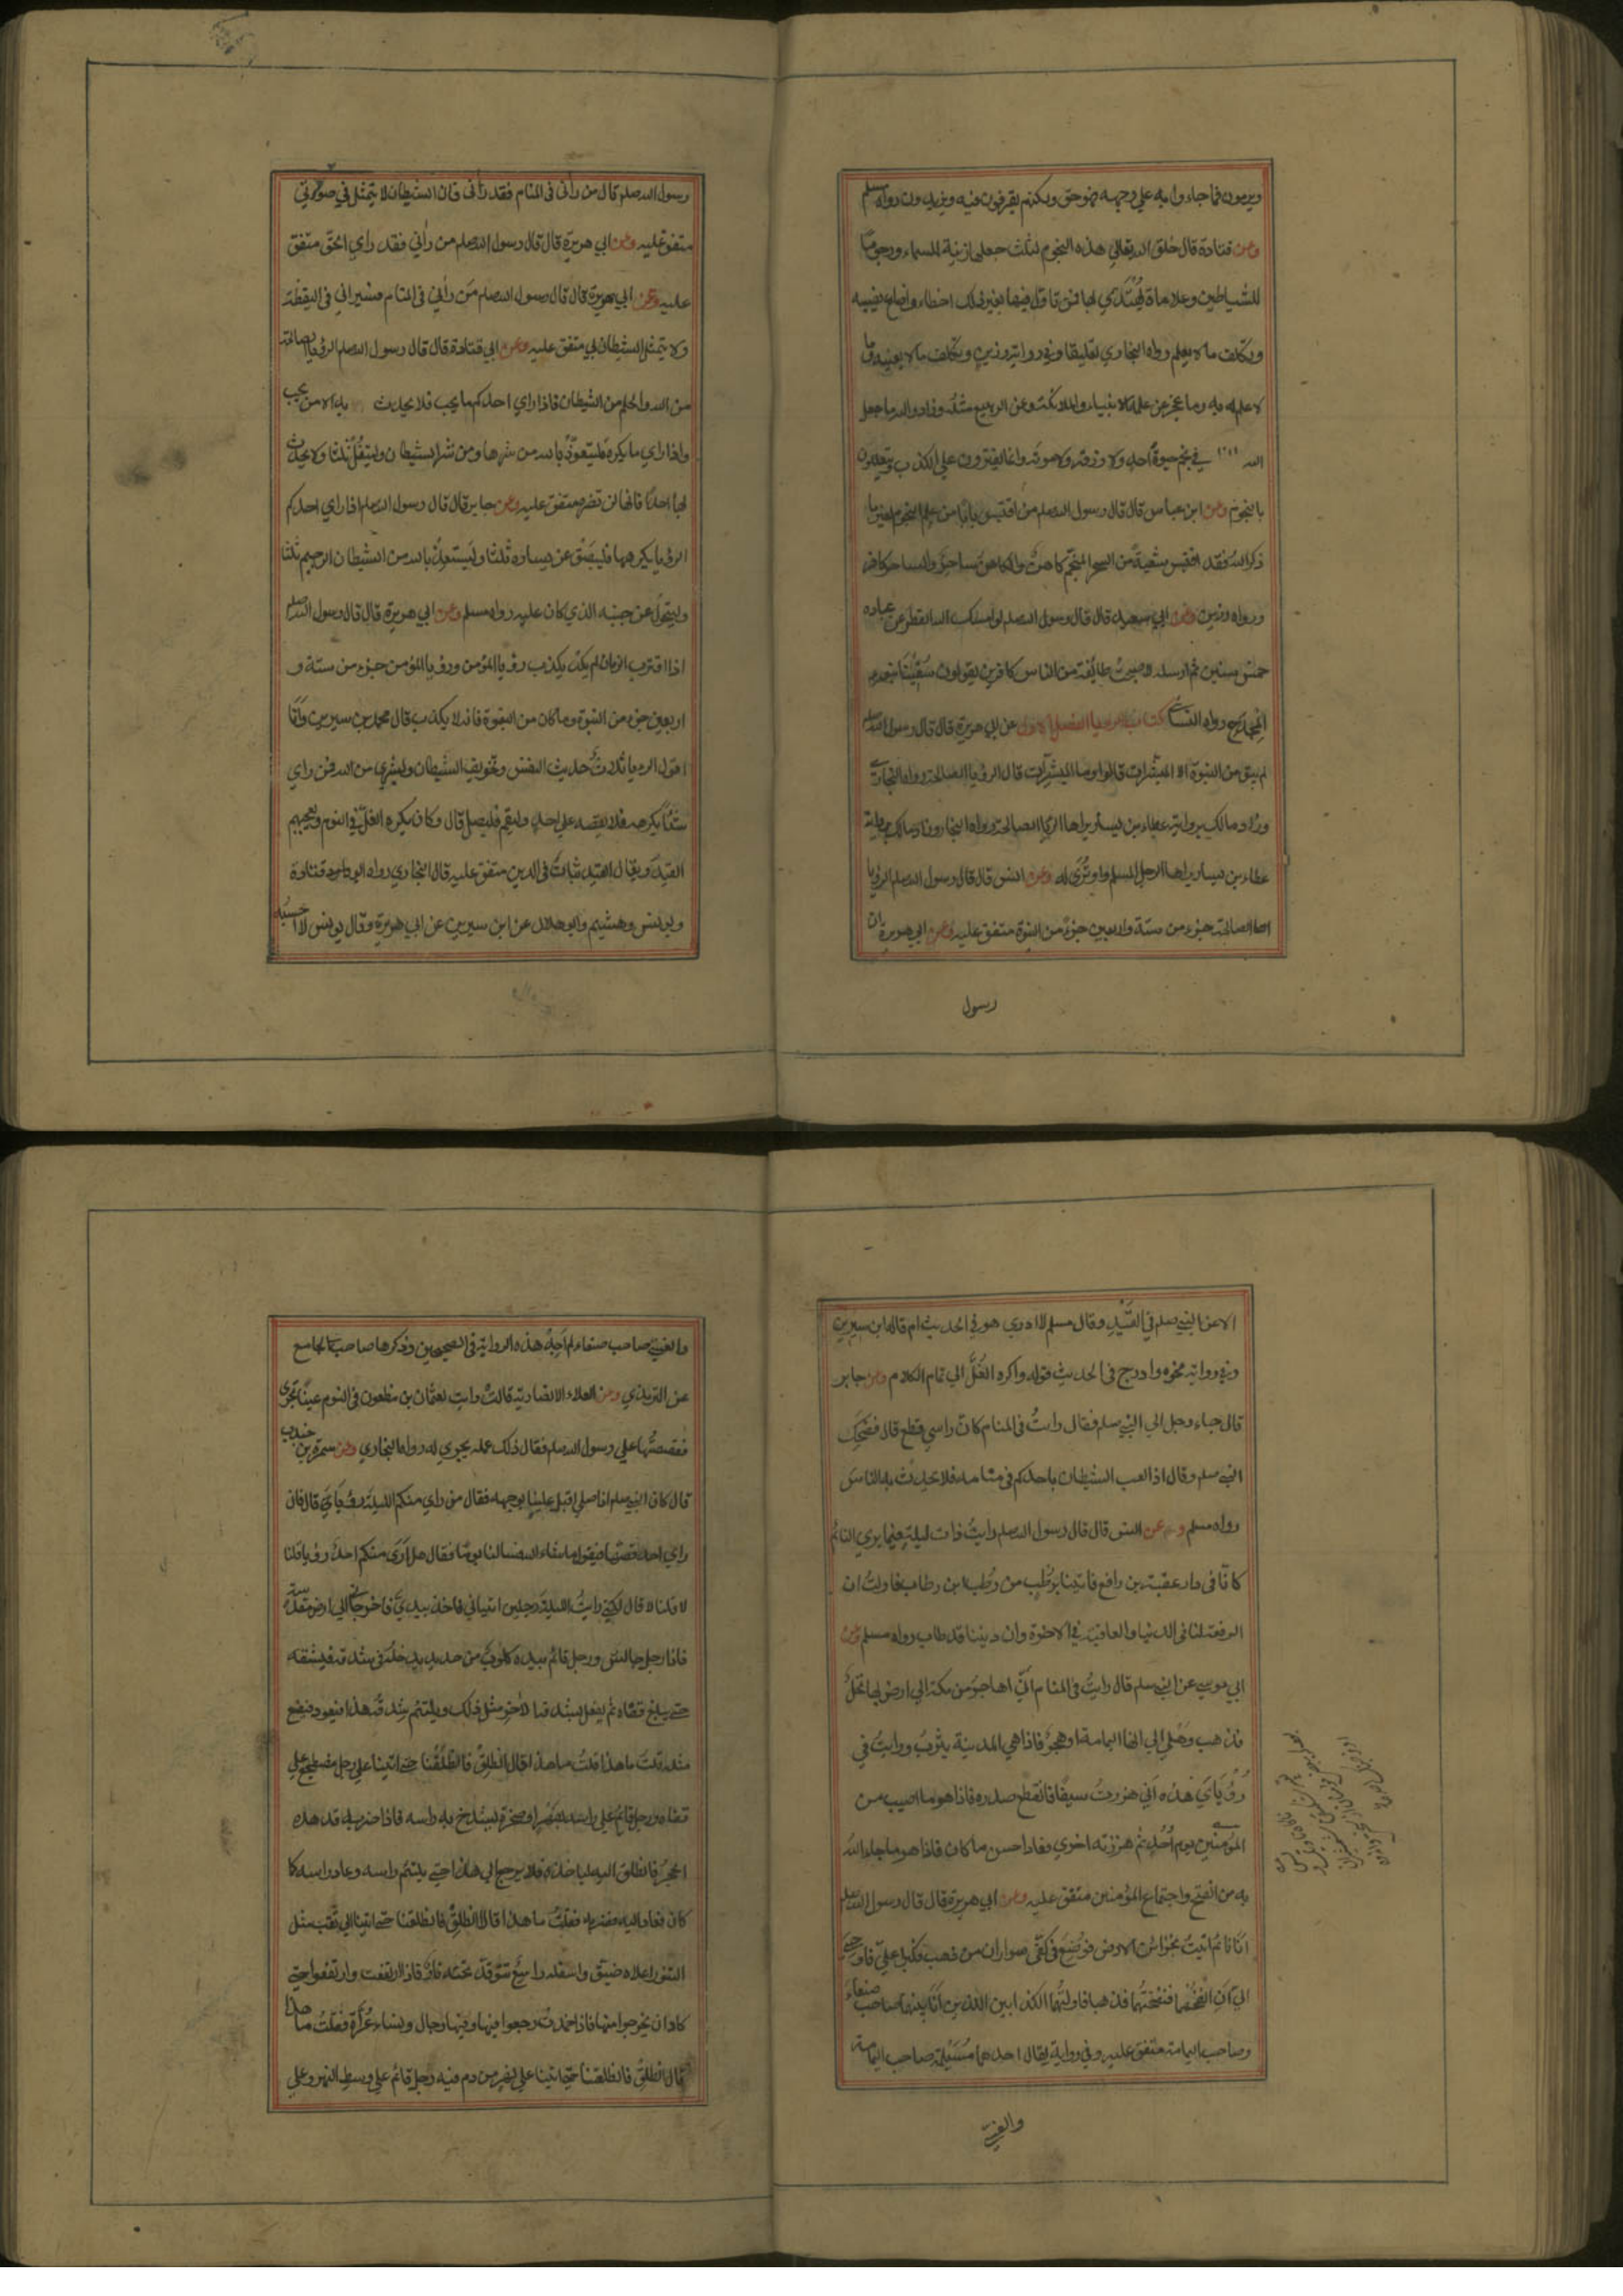 ويرمون فما جاءوا به علي وجهه فهو حق ولكنهم يقرفون فيه ويزيدون رواه مسلم
وعن قتادة قال خلق الله تعالي هذه النجوم لثلث جعلها زينة للسماء ورجوما
للشياطين وعلامات يهتدي بها فمن تاول فيها بغير ذلك اخطاء واضاع نصيبه
وتكلف ما لا يعلم رواه البخاري تعليقا وفي رواية رزين وتكلف ما لا يعنيه وما
لا علم له به وما عجز عن علمه الانبياء والملائكة وعن الربيع مثله وزاد والله ما جعل
الله في نجم حيوة احد ولا رزقه ولا موته وانما يفترون علي الكذب ويتعللون
بالنجوم وعن ابن عباس قال قال رسول الله صلم من اقتبس بابا من علم النجوم لغير ما
ذكر الله فقد اقتبس شعبة من السحر المنجم كاهن والكاهن ساحر والساحر كافر
ورواه رزين وعن ابي سعيد قال قال رسول الله صلم لو امسك الله القطر عن عباده
خمس سنين ثم ارسله لاصبحت طائفة من الناس كافرين يقولون سقينا بنوء
المجدح رواه النسائي كتاب الرويا الفصل الاول عن ابي هريرة قال قال رسول الله صلم
لم يبق من النبوة الا المبشرات قالوا وما المبشرات قال الرؤيا الصالحة رواه البخاري
وزاد مالك برواية عطاء بن يسار يراها الرويا الصالحة رواه البخاري وزاد مالك برواية
عطاء بن يسار يراها الرجل المسلم او تري له وعن انس قال قال رسول الله صلم الرؤيا
الصالحة جزء من ستة واربعين جزء من النبوة متفق عليه وعن ابي هريرة ان
رسول
رسول الله صلم قال من راني في المنام فقد راني فان الشيطان لا يتمثل في صورتي
متفق عليه وعن ابي هريرة قال قال رسول الله صلم من راني فقد راي الحق متفق
عليه وعن ابي هريرة قال قال رسول الله صلم من راني في المنام فسيراني في اليقظة
ولا يتمثل الشيطان بي متفق عليه وعن ابي قتادة قال قال رسول الله صلم الرؤيا الصالحة
من الله والحلم من الشيطان فاذا راي احدكم ما يحب فلا يحدث به الا من يحب
واذا راي ما يكره فليتعوذ بالله من شرها ومن شر الشيطان وليتفل ثلثا ولا يحدث
بها احدا فانها لن تضره متفق عليه وعن جابر قال قال رسول الله صلم اذا راي احدكم
الرؤيا يكرهها فليبصق عن يساره ثلثا وليستعذ بالله من الشيطان الرجيم ثلثا
وليتحول عن جنبه الذي كان عليه رواه مسلم وعن ابي هريرة قال قال رسول الله صلم
اذا اقترب الزمان لم يكد يكذب رؤيا المؤمن ورؤيا المؤمن جزء من ستة و
اربعين جزء من النبوة وما كان من النبوة فانه لا يكذب قال محمد بن سيرين وانا
اقول الرويا ثلاث حديث النفس وتخويف الشيطان وبشري من الله فمن راي
شيئا يكرهه فلا يقصه علي احد وليقم فليصل قال وكان يكره الغل في النوم ويعجبهم
القيد ويقال القيد ثبات في الدين متفق عليه قال البخاري رواه قتادة
ويونس وهشيم وابو هلال عن ابن سيرين عن ابي هريرة وقال يونس لا احسبه
الا عن النبي صلم في القيد وقال مسلم لا ادري هو في الحديث ام قاله ابن سيرين
وفي رواية نحوه وادرج في الحديث قوله واكره الغل الي تمام الكلام وعن جابر
قال جاء رجل الي النبي صلم فقال رايت في المنام كان راسي قطع قال فضحك
النبي صلم وقال اذا لعب الشيطان باحدكم في منامه فلا يحدث به الناس
رواه مسلم وعن انس قال قال رسول الله صلم رايت ذات ليلة فيما يري النائم
كانا في دار عقبة بن رافع فاتينا برطب من رطب ابن طاب فاولت ان
الرفعة لنا في الدنيا والعاقبة في الاخرة وان ديننا قد طاب رواه مسلم وعن
ابي موسي عن النبي صلم قال رايت في المنام اني اهاجر من مكة الي ارض بها نخل
فذهب وهلي الي انها اليمامة او هجر فاذا هي المدينة يثرب ورايت في
رؤياي هذه اني هززت سيفا فانقطع صدره فاذا هو ما اصيب من
المؤمنين يوم احد ثم هززته اخري فعاد احسن ما كان فاذا هو ما جاء الله
به من الفتح واجتماع المؤمنين متفق عليه وعن ابي هريرة قال قال رسول الله صلم
انا نائم اتيت بخزائن الارض فوضع في كفي سواران من ذهب فكبرا علي فاوحي
الي ان انفخهما فنفختهما فذهبا فاولتهما الكذابين الذين انا بينهما صاحب صنعاء
وصاحب اليمامة متفق عليه وفي رواية يقال احدهما مسيلمة صاحب اليمامة
والعنسي
والعنسي صاحب صنعاء لم اجد هذه الرواية في الصحيحين وذكرها صاحب الجامع
عن الترمذي وعن ام العلاء الانصارية قالت رايت لعثمان بن مظعون في النوم عينا تجري
فقصصتها علي رسول الله صلم فقال ذلك عمله يجري له رواه البخاري وعن سمرة بن جندب
قال كان النبي صلم اذا صلي اقبل علينا بوجهه فقال من راي منكم الليلة رؤيا قال فان
راي احد قصها فيقول ما شاء الله فسالنا يوما فقال هل راي منكم احد رؤيا قلنا
لا قال لكني رايت الليلة رجلين اتياني فاخذا بيدي فاخرجاني الي ارض مقدسة
فاذا رجل جالس ورجل قائم بيده كلوب من حديد يدخله في شدقه فيشقه
حتي يبلغ قفاه ثم يفعل بشدقه الاخر مثل ذلك ويلتئم شدقه هذا فيعود فيصنع
مثله قلت ما هذا قالا انطلق فانطلقنا حتي اتينا علي رجل مضطجع علي
قفاه ورجل قائم علي راسه بفهر او صخرة يشدخ به راسه فاذا ضربه تدهده
الحجر فانطلق اليه لياخذه فلا يرجع الي هذا حتي يلتئم راسه وعاد راسه كما
كان فعاد اليه فضربه فقلت ما هذا قالا انطلق فانطلقنا حتي اتينا الي ثقب مثل
التنور اعلاه ضيق واسفله واسع تتوقد تحته نار فاذا ارتفعت ارتفعوا حتي
كاد ان يخرجوا منها فاذا خمدت رجعوا فيها وفيها رجال ونساء عراة فقلت ما هذا
قالا انطلق فانطلقنا حتي اتينا علي نهر من دم فيه رجل قائم علي وسط النهر وعلي